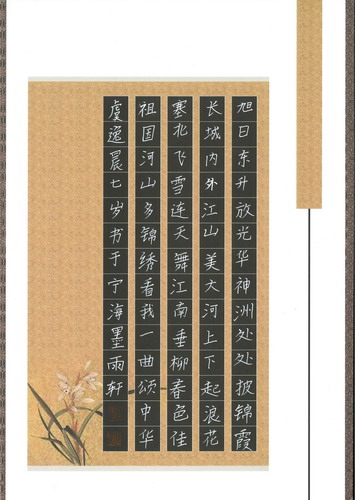 旭日东升放光华神洲处处披锦霞
长城内外江山美大河上下起浪花
塞北飞雪连天舞江南垂柳春色佳
祖国河山多锦绣看我一曲颂中华
虞逸晨七岁书于宁海墨雨轩